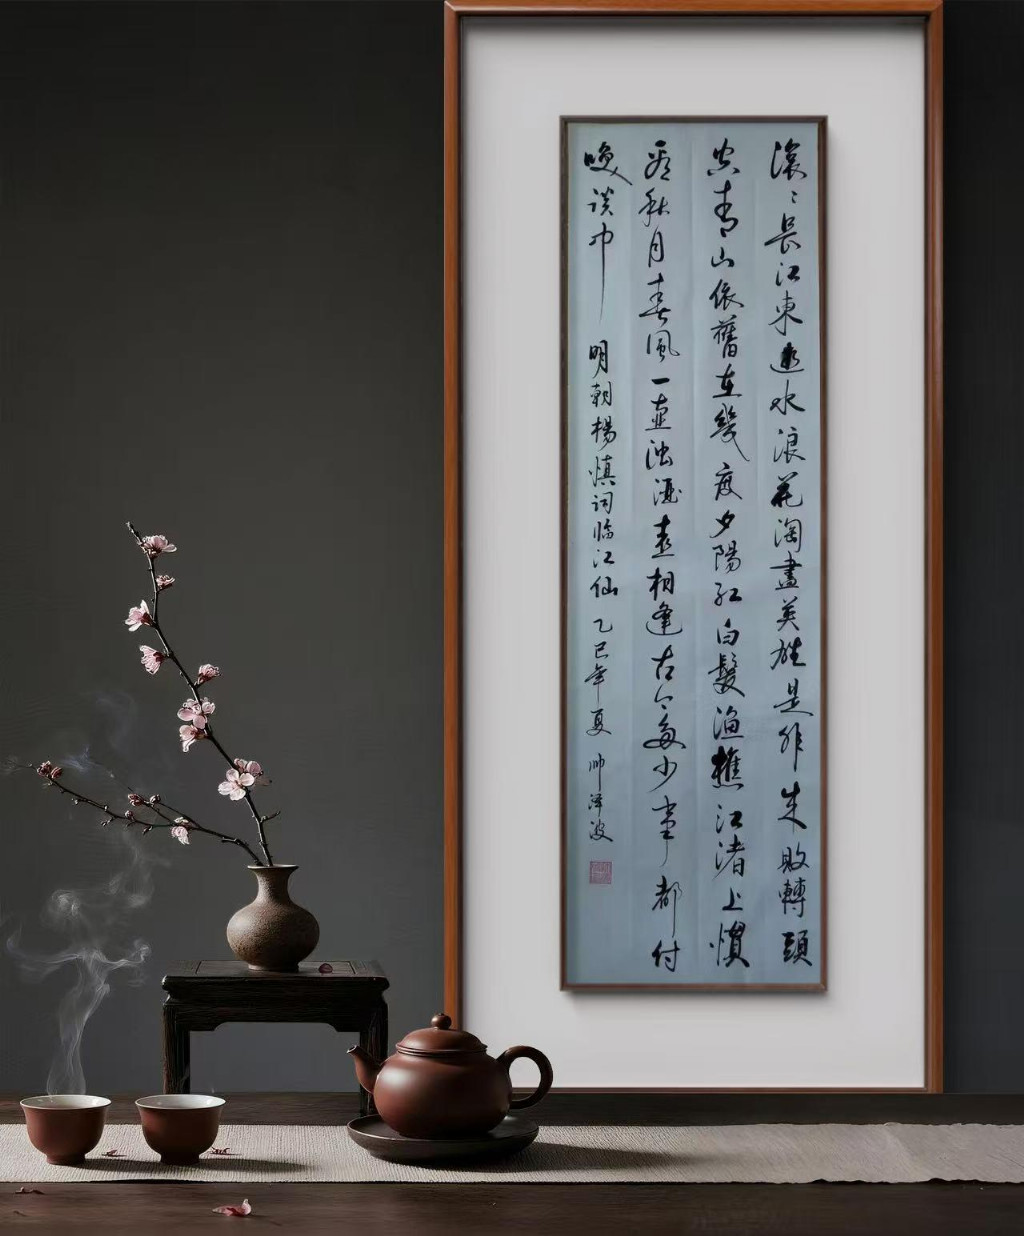 滚〻長江東逝水浪花淘盡英雄是非成敗轉頭
空青山依舊在幾度夕陽紅白髮漁樵江渚上慣
看秋月春風一壺濁酒喜相逢古今多少事都付
咲談中 明朝楊慎词临江仙 乙巳年夏 帅泽波